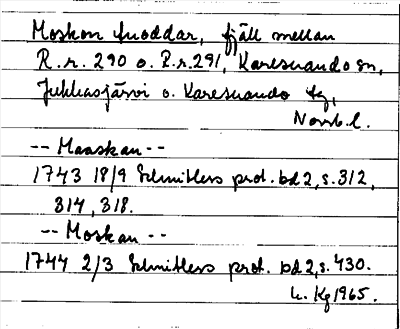 Moskon duoddar, fjäll mellan
R.r. 290 o. R.r. 291, Karesuando sn,
Jukkasjärvi o. Karesuando tg,
Norrb. l.
-- Maaskan --
1743 18/9 Schnitlers prot. bd 2, s. 312,
314, 318.
-- Moskan --
1744 2/3 Schnitlers prot. bd 2, s. 430.
Kg 1965.